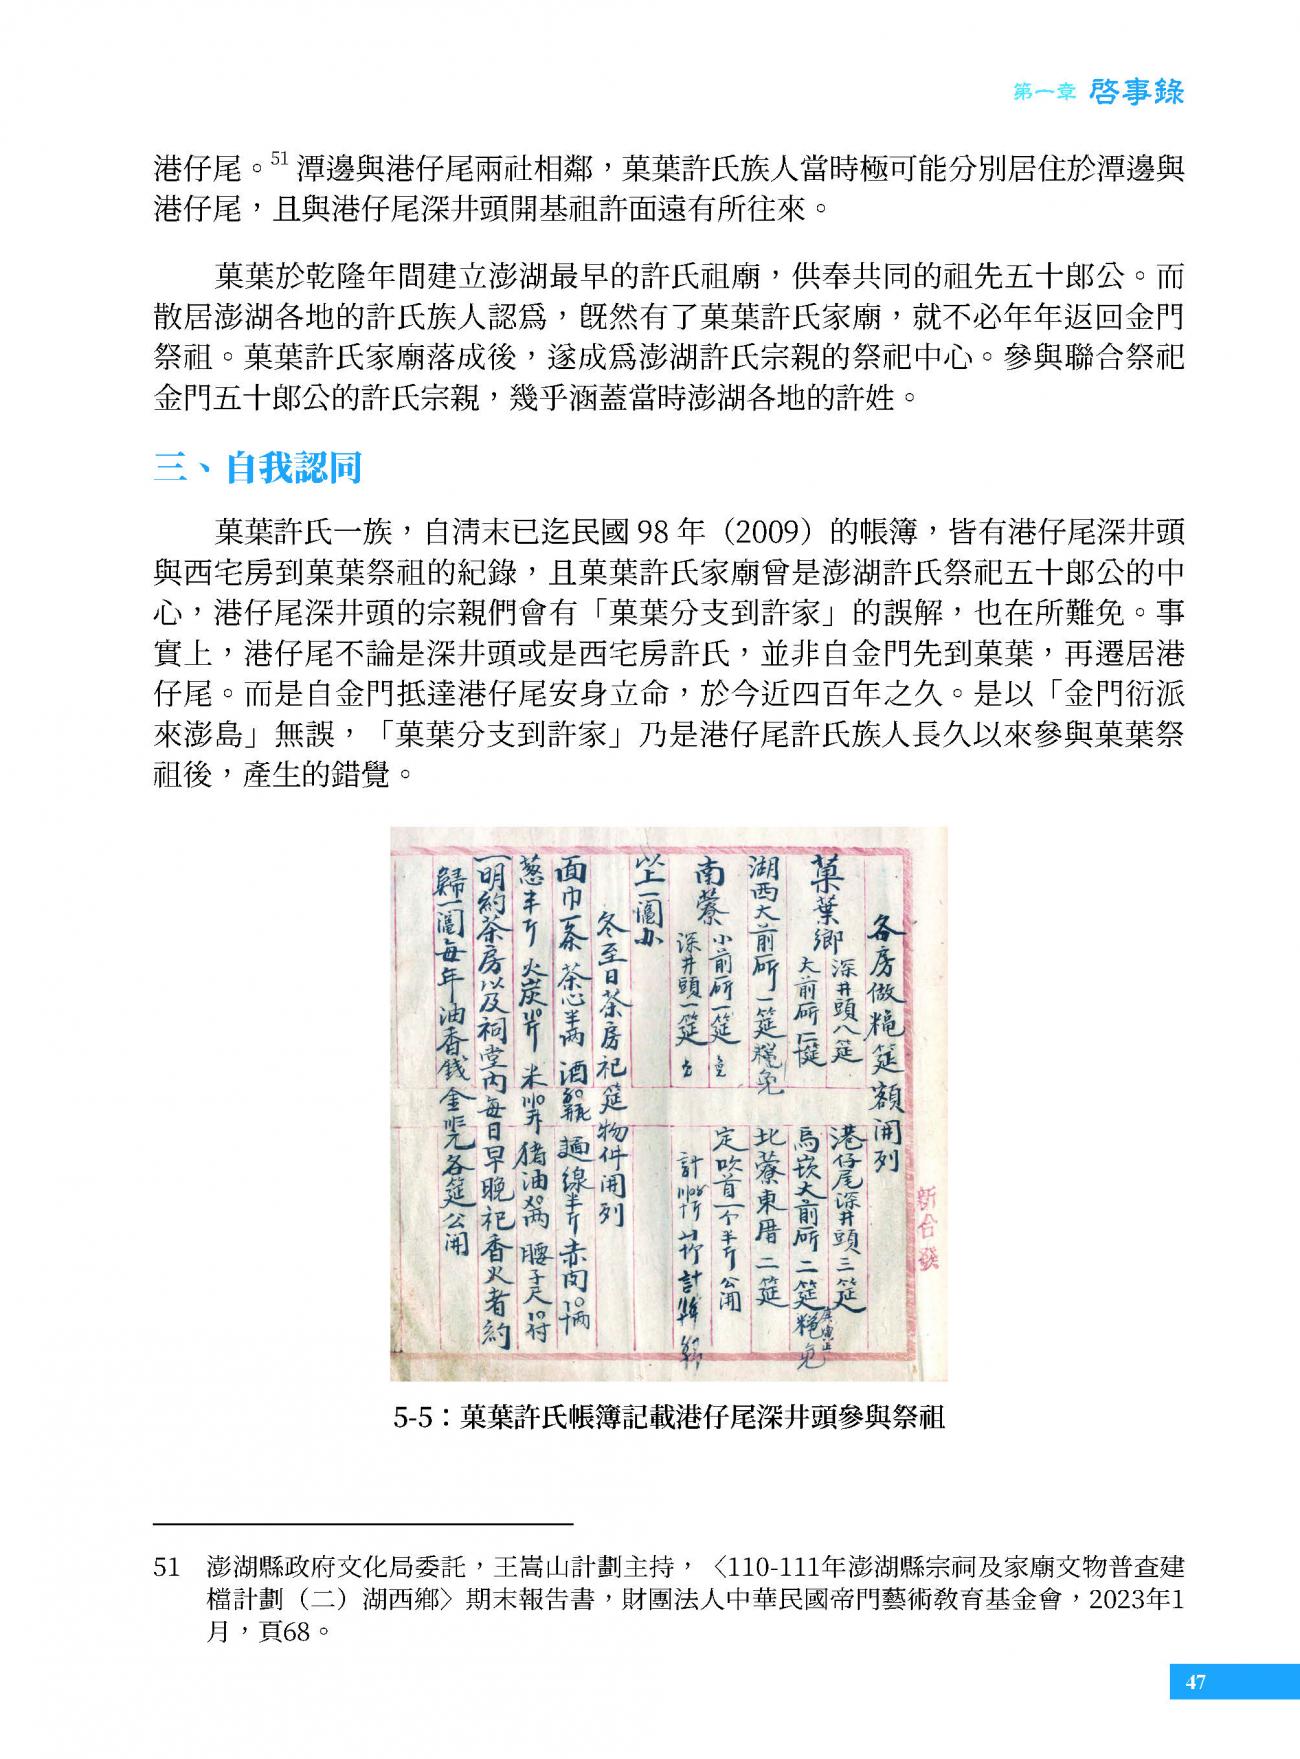 第一章 啓事錄
港仔尾。51 潭邊與港仔尾兩社相鄰，菓葉許氏族人當時極可能分別居住於潭邊與
港仔尾，且與港仔尾深井頭開基祖許面遠有所往來。
菓葉於乾隆年間建立澎湖最早的許氏祖廟，供奉共同的祖先五十郞公。而
散居澎湖各地的許氏族人認爲，旣然有了菓葉許氏家廟，就不必年年返回金門
祭祖。菓葉許氏家廟落成後，遂成爲澎湖許氏宗親的祭祀中心。參與聯合祭祀
金門五十郞公的許氏宗親，幾乎涵蓋當時澎湖各地的許姓。
三、自我認同
菓葉許氏一族，自淸末已迄民國 98 年（2009）的帳簿，皆有港仔尾深井頭
與西宅房到菓葉祭祖的紀錄，且菓葉許氏家廟曾是澎湖許氏祭祀五十郞公的中
心，港仔尾深井頭的宗親們會有「菓葉分支到許家」的誤解，也在所難免。事
實上，港仔尾不論是深井頭或是西宅房許氏，並非自金門先到菓葉，再遷居港
仔尾。而是自金門抵達港仔尾安身立命，於今近四百年之久。是以「金門衍派
來澎島」無誤，「菓葉分支到許家」乃是港仔尾許氏族人長久以來參與菓葉祭
祖後，產生的錯覺。
各房做粬筵額開列
菓葉鄉 深井頭八筵
大前所
港仔尾深井頭三筵
烏崁大前所二筵
湖西大前所一筵
北藔東厝二筵
南藔 小前所一筵
深井頭一筵
定吹首一个半斤公開
以上一圖办
冬至日茶房祀筵物件開列
面巾一条 茶心半両 酒 麵線半斤赤肉
葱半斤 火炭 米 豬油 腰子尺
一明約茶房以及祠堂內每日早晚祀香火者約
歸一圖每年油香錢金 各筵公開
新合發
5-5：菓葉許氏帳簿記載港仔尾深井頭參與祭祖
51 澎湖縣政府文化局委託，王嵩山計劃主持，〈110-111年澎湖縣宗祠及家廟文物普查建
檔計劃（二）湖西鄕〉期末報告書，財團法人中華民國帝門藝術敎育基金會，2023年1
月，頁68。
47